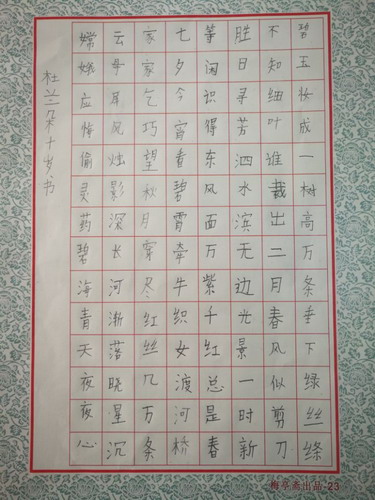 碧玉妆成一树高万条垂下绿丝绦
不知细叶谁裁出二月春风似剪刀
胜日寻芳泗水滨无边光景一时新
等闲识得东风面万紫千红总是春
七夕今宵看碧霄牵牛织女渡河桥
家家乞巧望秋月穿尽红丝几万条
云母屏风烛影深长河渐落晓星沉
嫦娥应悔偷灵药碧海青天夜夜心
杜兰朵十岁书
出品-23